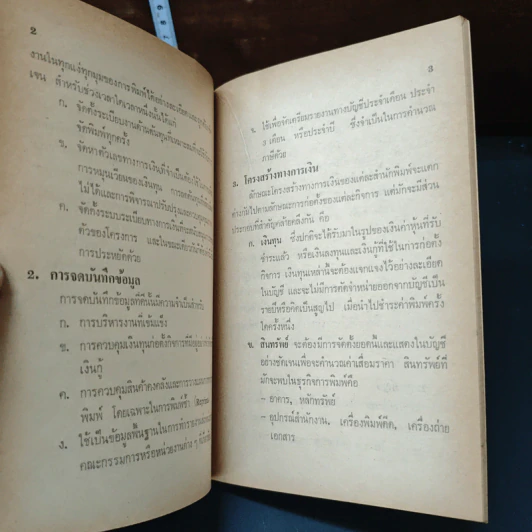 2
งานในทุกแง่ทุกมุมของการพิมพ์ได้อย่างละเอียด
เจน สำหรับช่วงเวลาใดเวลาหนึ่งนั้นได้แก่
ก. จัดตั้งระเบียบงานด้านต้นทุนที่เหมาะสม
จัดพิมพ์ทุกครั้ง
ข. จัดหาตัวเลขทางการเงินที่จำเป็นต้อง
การหมุนเวียนของเงินทุน การลดต้นทุน
ไม่ได้และการพิจารณาปรับปรุง
ค. จัดตั้งระบบระเบียบทางการเงิน
ตัวของโครงการ และในขณะเดียวกัน
การประหยัดด้วย
2. การจดบันทึกข้อมูล
การจดบันทึกข้อมูลที่ดีนั้นมีความจำเป็นสำหรับ
ก. การบริหารงานที่เข้มแข็ง
ข. การควบคุมเงินทุนก่อตั้งกิจการ
เงินกู้
ค. การควบคุมสินค้าคงคลังและการวาง
พิมพ์ โดยเฉพาะในการพิมพ์ซ้ำ
ง. ใช้เป็นข้อมูลพื้นฐานในการทำรายงาน
คณะกรรมการหรือหน่วยงานต่าง ๆ
3
จ. ใช้เพื่อจัดเตรียมรายงานทางบัญชีประจำเดือน ประจำ
๓ เดือน หรือประจำปี ซึ่งจำเป็นในการคำนวณ
ภาษีด้วย
3. โครงสร้างทางการเงิน
ลักษณะโครงสร้างทางการเงินของแต่ละสำนักพิมพ์จะแตก
ต่างกันไปตามลักษณะการก่อตั้งของแต่ละกิจการ แต่มักจะมีส่วน
ประกอบที่สำคัญคล้ายคลึงกัน คือ
ก. เงินทุน ซึ่งปกติจะได้รับมาในรูปของเงินค่าหุ้นที่รับ
ชำระแล้ว หรือเงินลงทุนและเงินกู้ที่ใช้ในการก่อตั้ง
กิจการ เงินทุนเหล่านี้จะต้องแจกแจงไว้อย่างละเอียด
ในบัญชี และจะไม่มีการตัดจำหน่ายออกจากบัญชีเป็น
รายปีหรือคิดเป็นสูญไป เมื่อนำไปชำระค่าพิมพ์ครั้ง
ใดครั้งหนึ่ง
ข. สินทรัพย์ จะต้องมีการจัดตั้งยอดต้นและแสดงในบัญชี
อย่างชัดเจนเพื่อจะคำนวณค่าเสื่อมราคา สินทรัพย์ที่
มักจะพบในธุรกิจการพิมพ์คือ
– อาคาร, หลักทรัพย์
– อุปกรณ์สำนักงาน, เครื่องพิมพ์ดีด, เครื่องถ่าย
เอกสาร